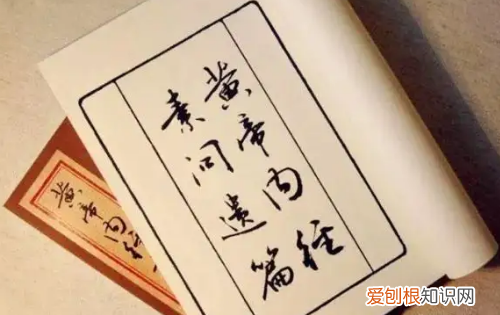 黄帝内经
素问遗篇
黄帝内经
爱刨根知识网